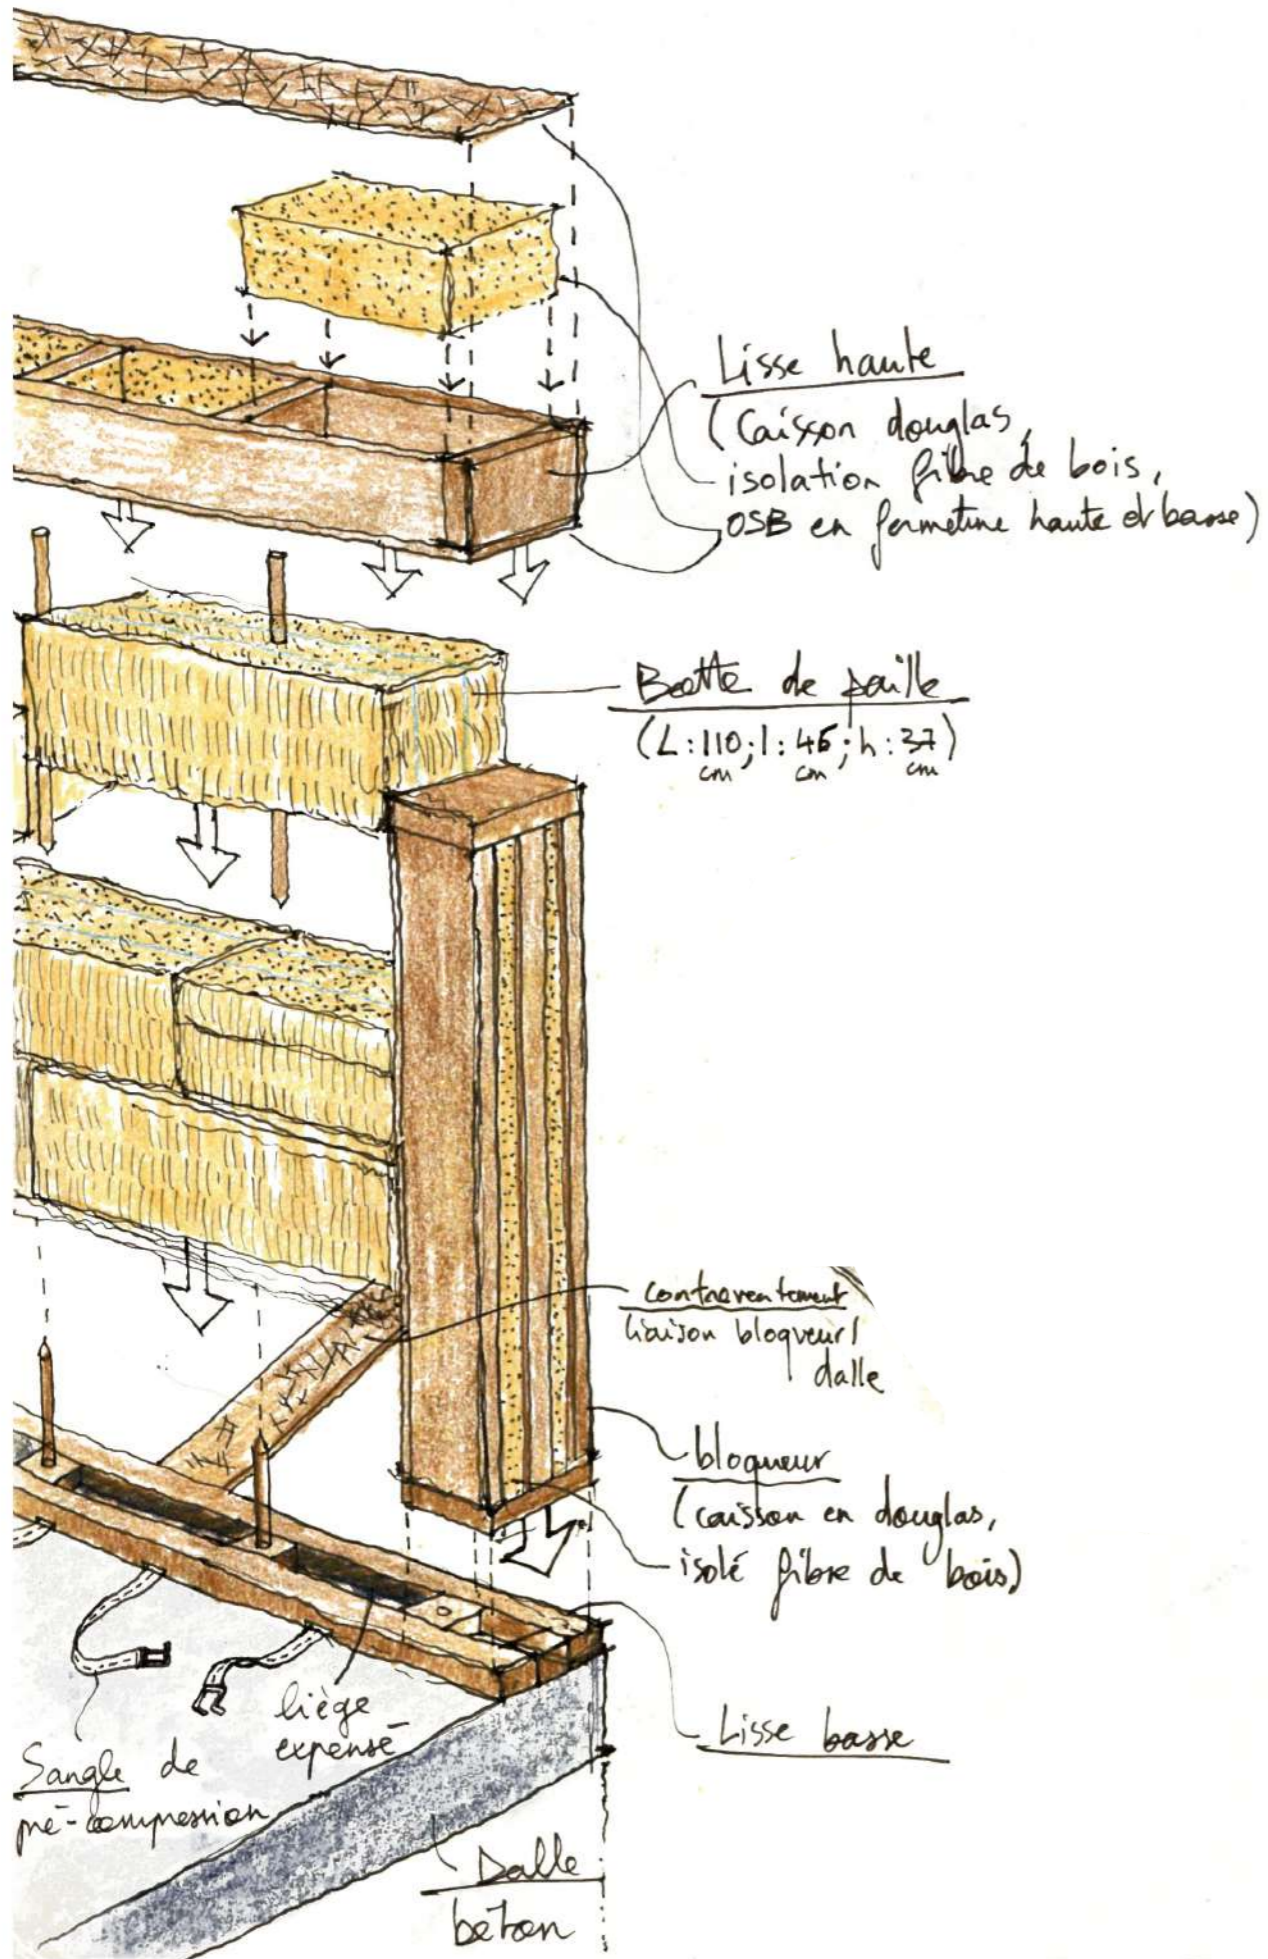 Lisse haute
(Caisson douglas,
isolation fibre de bois,
OSB en fermeture haute et basse)
Botte de paille
(L:110; l:45; h:37)
cm cm cm
contreventement
liaison bloqueur/
dalle
bloqueur
(caisson en douglas,
isolé fibre de bois)
liège
expensé
Lisse basse
Sangle de
pré-compression
Dalle
béton